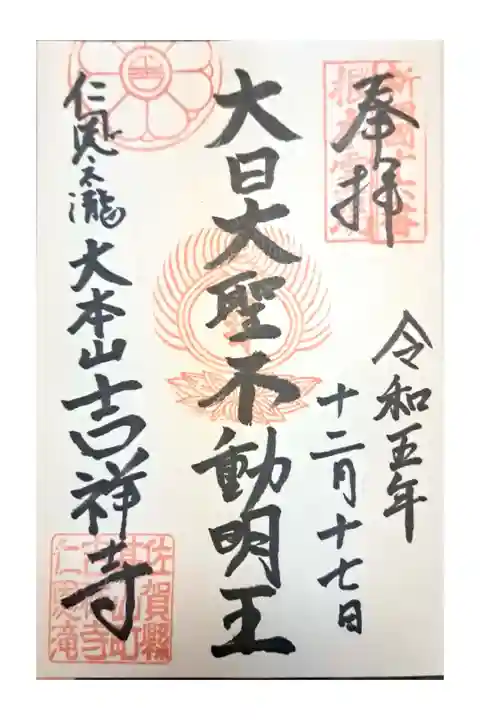 奉拝
令和五年
十二月十七日
大日大聖不動明王
仁恩之瀧 大本山吉祥寺
佐賀縣
基山町
吉祥寺
仁恩滝